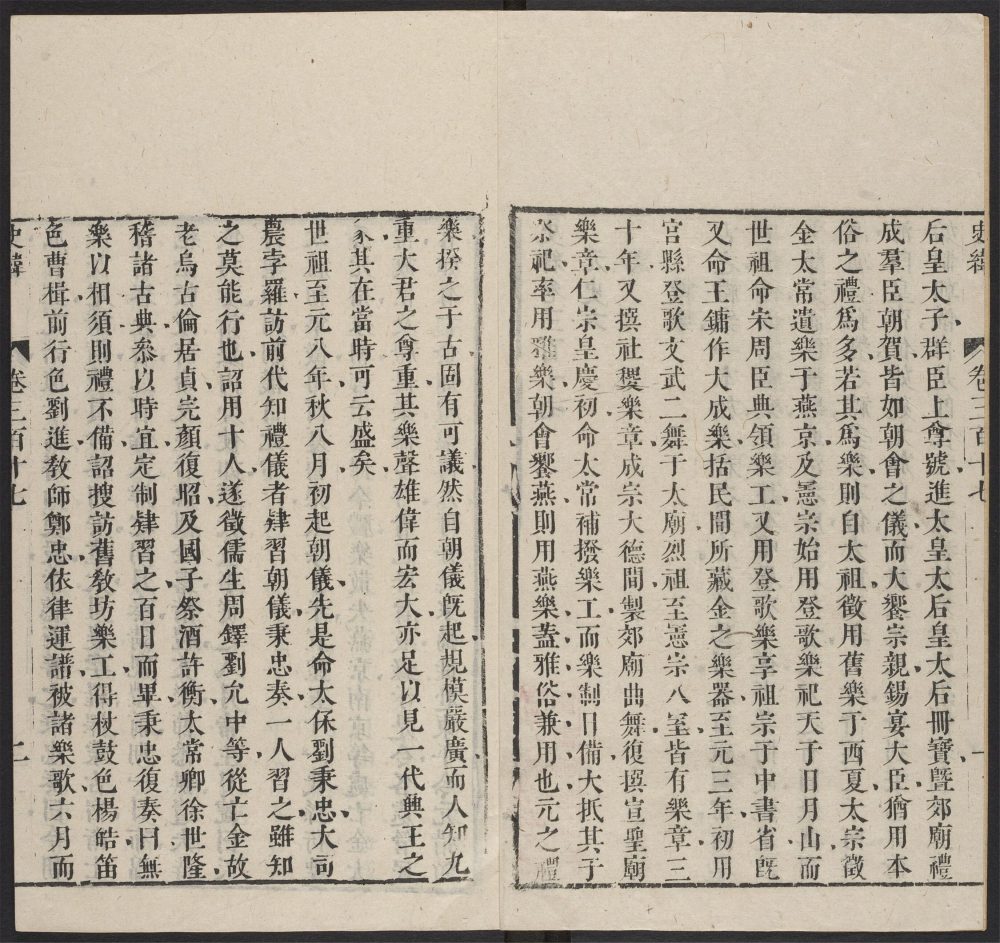 史緯 卷三百十七 一
后皇太子群臣上尊號進太皇太后皇太后冊寶暨郊廟禮
成羣臣朝賀皆如朝會之儀而大饗宗親錫宴大臣猶用本
俗之禮爲多若其爲樂則自太祖徵用舊樂于西夏太宗徵
金太常遺樂于燕京及憲宗始用登歌樂祀天于日月山而
世祖命宋周臣典領樂工又用登歌樂享祖宗于中書省旣
又命王鏞作大成樂括民間所藏金之樂器至元三年初用
宮縣登歌文武二舞于太廟烈祖至憲宗八室皆有樂章三
十年又撰社稷樂章成宗大德間製郊廟曲舞復撰宣聖廟
樂章仁宗皇慶初命太常補撥樂工而樂制日備大抵其于
祭祀率用雅樂朝會饗燕則用燕樂葢雅俗兼用也元之禮
樂揆之于古固有可議然自朝儀旣起規模嚴廣而人知九
重大君之尊重其樂聲雄偉而宏大亦足以見一代興王之
象其在當時可云盛矣
世祖至元八年秋八月初起朝儀先是命太保劉秉忠大司
農孛羅訪前代知禮儀者肄習朝儀秉忠奏一人習之雖知
之莫能行也詔用十人遂徵儒生周鐸劉允中等從亡金故
老烏古倫居貞完顏復昭及國子祭酒許衡太常卿徐世隆
稽諸古典叅以時宜定制肄習之百日而畢秉忠復奏曰無
樂以相須則禮不備詔搜訪舊教坊樂工得杖鼓色楊皓笛
色曹楫前行色劉進教師鄭忠依律運譜被諸樂歌六月而
史緯 卷三百十七 二